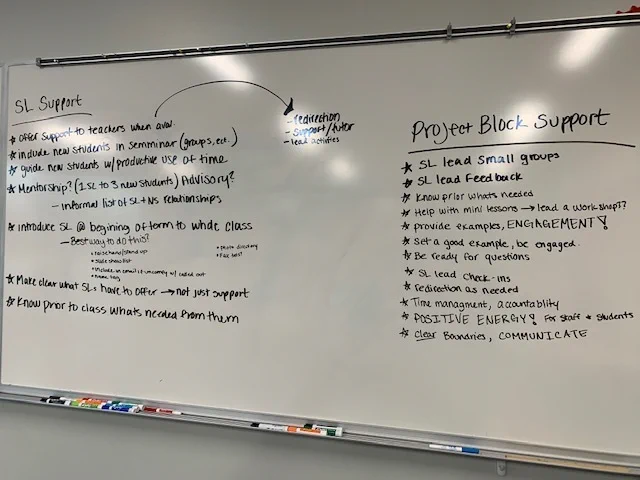 SL Support
* offer support to teachers when avai.
* include new students in semminar (groups, ect.)
* guide new students w/ productive use of time
* Mentorship? (1 SL to 3 new students) Advisory?
- informal list of SL + NS relationships
* Introduce SL @ begining of term to whole class
- Best way to do this?
* raise hand/stand up
* slide show list
* include in email if virtually w/ called out
* name tag
* photo directory
* Make clear what SLs have to offer → not just support
* Know prior to class whats needed from them
- redirection
- support/tutor
- lead activities
Project Block Support
* SL lead small groups
* SL lead feedback
* Know prior whats needed
* Help with mini lessons → lead a workshop??
* provide examples, ENGAGEMENT!
* Set a good example, be engaged.
* Be ready for questions
* SL lead check-ins
* redirection as needed
* Time managment, accountablity
* POSITIVE ENERGY! For staff + students
* Clear Boundries, COMMUNICATE